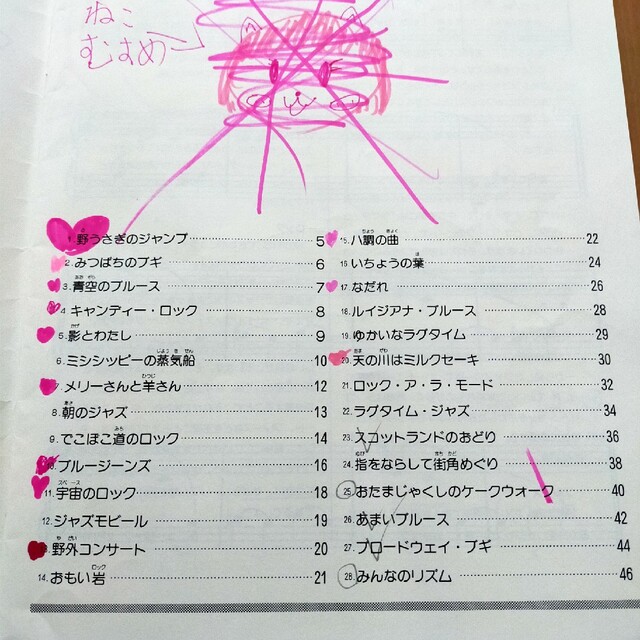 ねこ
むすめ
1.野うさぎのジャンプ 5
2.みつばちのブギ 6
3.青空のブルース 7
4.キャンディー・ロック 8
5.影とわたし 9
6.ミシシッピーの蒸気船 10
7.メリーさんと羊さん 12
8.朝のジャズ 13
9.でこぼこ道のロック 14
10.ブルージーンズ 16
11.宇宙のロック 18
12.ジャズモビール 19
13.野外コンサート 20
14.おもい岩 21
15.ハ調の曲 22
16.いちょうの葉 24
17.なだれ 26
18.ルイジアナ・ブルース 28
19.ゆかいなラグタイム 29
20.天の川はミルクセーキ 30
21.ロック・ア・ラ・モード 32
22.ラグタイム・ジャズ 34
23.スコットランドのおどり 36
24.指をならして街角めぐり 38
25.おたまじゃくしのケークウォーク 40
26.あまいブルース 42
27.ブロードウェイ・ブギ 44
28.みんなのリズム 46